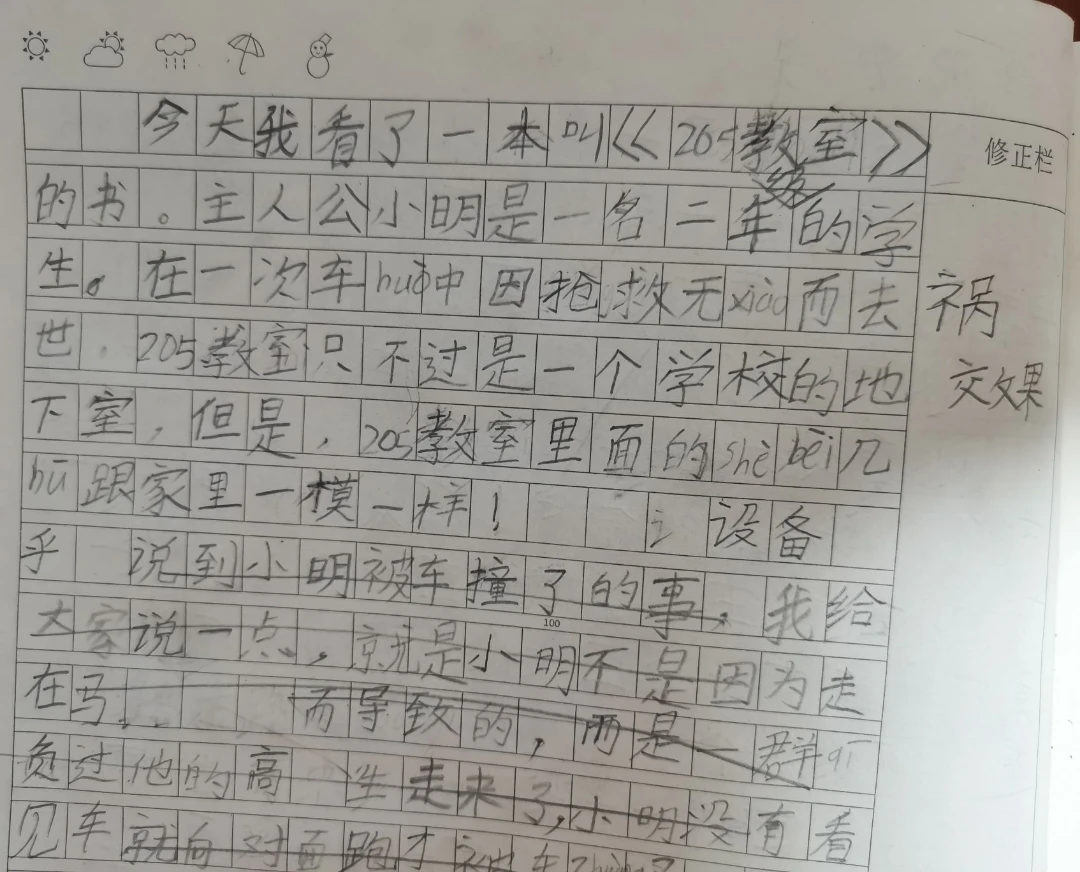 今天我看了一本叫《205教室》
修正栏
级
的书。主人公小明是一名二年的学
生。在一次车huò中因抢救无xiào而去
祸
世.205教室只不过是一个学校的地
效果
下室,但是,205教室里面的shè bèi几
hū跟家里一模一样!设备
乎 说到小明被车撞了的事,我给
大家说一点,就是小明不是因为走
100
在马..而导致的,而是一群
负过他的高 生走来了,小明没有看
见车就向对面跑才被车